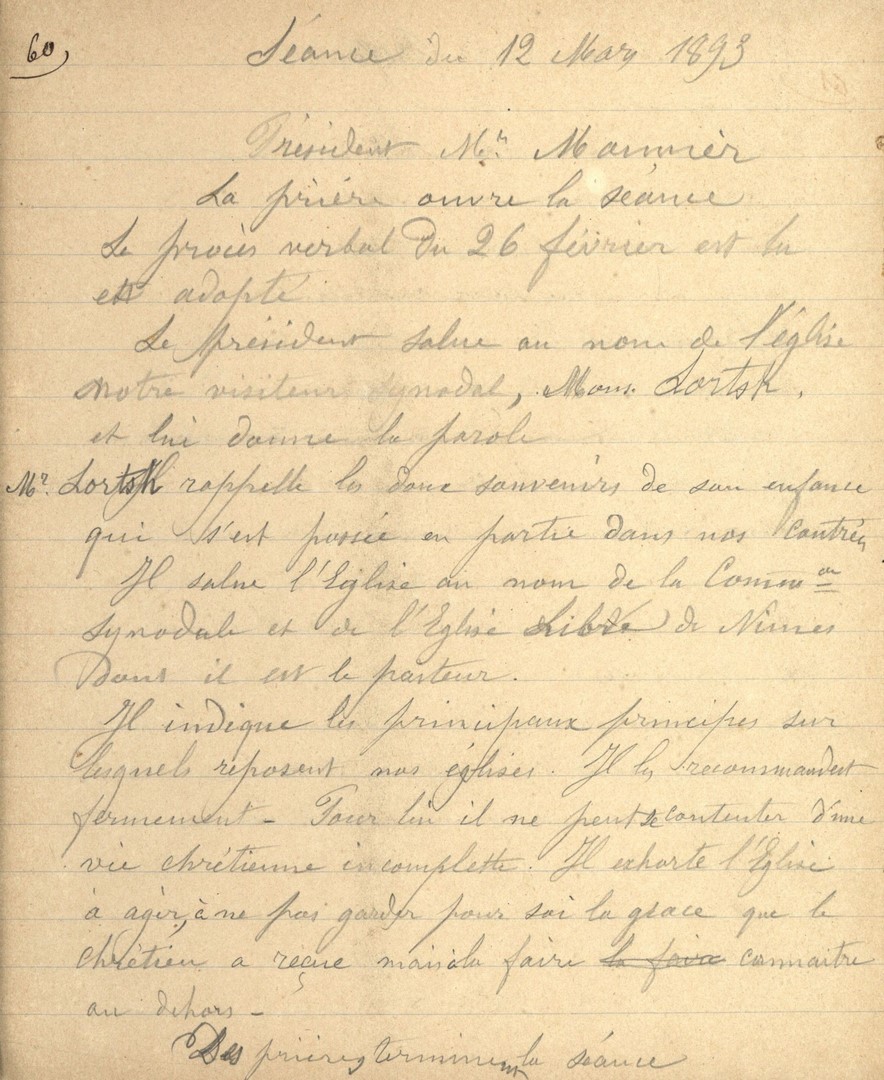 60
Séance du 12 Mars 1893
Président Mr. Monnier
La prière ouvre la séance
Le procès verbal du 26 février est lu
et adopté
Le président salue au nom de l'église
notre visiteur synodal, Mons. Lortsh,
et lui donne la parole
Mr. Lortsh rappelle les doux souvenirs de son enfance
qui s'est passée en partie dans nos contrées
Il salue l'Eglise au nom de la Common
synodale et de l'Eglise Libre de Nîmes
dont il est le pasteur.
Il indique les principaux principes sur
lesquels reposent nos églises. Il les recommandent
fermement - Pour lui il ne peut se contenter d'une
vie chrétienne incomplette. Il exhorte l'Eglise
à agir, à ne pas garder pour soi la grace que le
chrétien a reçue mais à la faire la faire connaitre
au dehors -
Des prières terminent la séance